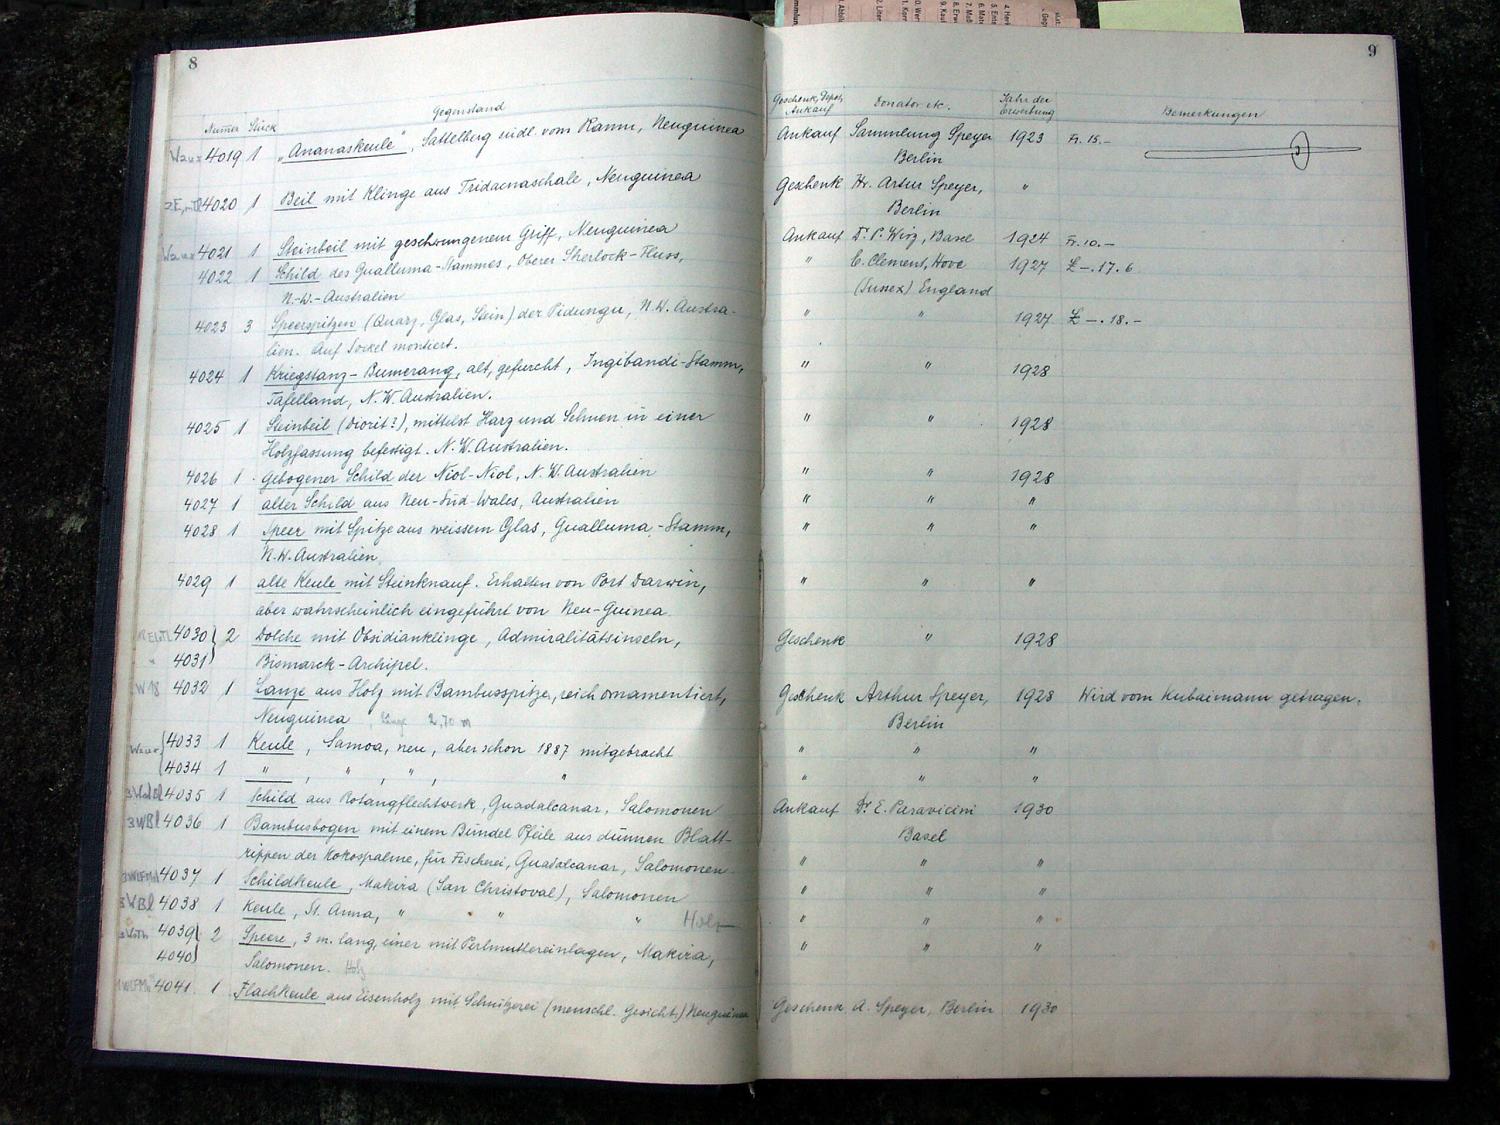 8
Numer Stück Gegenstand
4019 1 „Ananaskeule“, Sattelberg südl. vom Ramu, Neuguinea
4020 1 Beil mit Klinge aus Tridacnaschale, Neuguinea
4021 1 Steinbeil mit geschwungenem Griff, Neuguinea
4022 1 Schild des Gualluma-Stammes, Oberer Sherlock-Fluss,
N.-W.-Australien
4023 3 Speerspitzen (Quarz, Glas, Stein) der Pidungu, N.W. Austra-
lien. Auf Sockel montiert.
4024 1 Kriegstanz-Bumerang, alt, gefurcht, Ingibandi-Stamm,
Tafelland, N.W. Australien.
4025 1 Steinbeil (Diorit?), mittelst Harz und Sehnen in einer
Holzfassung befestigt. N.W. Australien.
4026 1 gebogener Schild der Niol-Niol, N.W. Australien
4027 1 alter Schild aus Neu-Süd-Wales, Australien
4028 1 Speer mit Spitze aus weissem Glas, Gualluma-Stamm,
N.W. Australien
4029 1 alte Keule mit Steinknauf. Erhalten von Port Darwin,
aber wahrscheinlich eingeführt von Neu-Guinea.
4030 2 Dolche mit Obsidianklinge, Admiralitätsinseln,
4031 Bismarck-Archipel.
4032 1 Lanze aus Holz mit Bambusspitze, reich ornamentiert,
Neuguinea Länge 2,70 m
4033 1 Keule, Samoa, neu, aber schon 1887 mitgebracht
4034 1 " , " , " , "
4035 1 Schild aus Rotangflechtwerk, Guadalcanar, Salomonen
4036 1 Bambusbogen mit einem Bündel Pfeile aus dünnen Blatt-
rippen der Kokospalme, für Fischerei, Guadalcanar, Salomonen
4037 1 Schildkeule, Makira (San Christoval), Salomonen
4038 1 Keule, St. Anna, " " " Holz
4039 2 Speere, 3 m. lang, einer mit Perlmuttereinlagen, Makira,
4040 Salomonen. Holz
4041. 1 Flachkeule aus Eisenholz mit Schnitzerei (menschl. Gesicht) Neuguinea
9
Geschenk, Depot, Ankauf Donator etc. Jahr der Erwerbung Bemerkungen
Ankauf Sammlung Speyer 1923 Fr. 15.-
Berlin
Geschenk Hr. Artur Speyer, "
Berlin
Ankauf Dr. P. Wirz, Basel 1924 Fr. 10.-
" E. Clement, Hove 1927 £ -. 17. 6
(Sussex) England
" " 1927 £ -. 18. -
" " 1928
" " 1928
" " 1928
" " "
" " "
" " "
Geschenk " 1928
Geschenk Arthur Speyer, 1928 Wird vom Kubaimann getragen.
Berlin
" " "
" " "
Ankauf Dr. E. Paravicini 1930
Basel
" " "
" " "
" " "
" " "
Geschenk A. Speyer, Berlin 1930